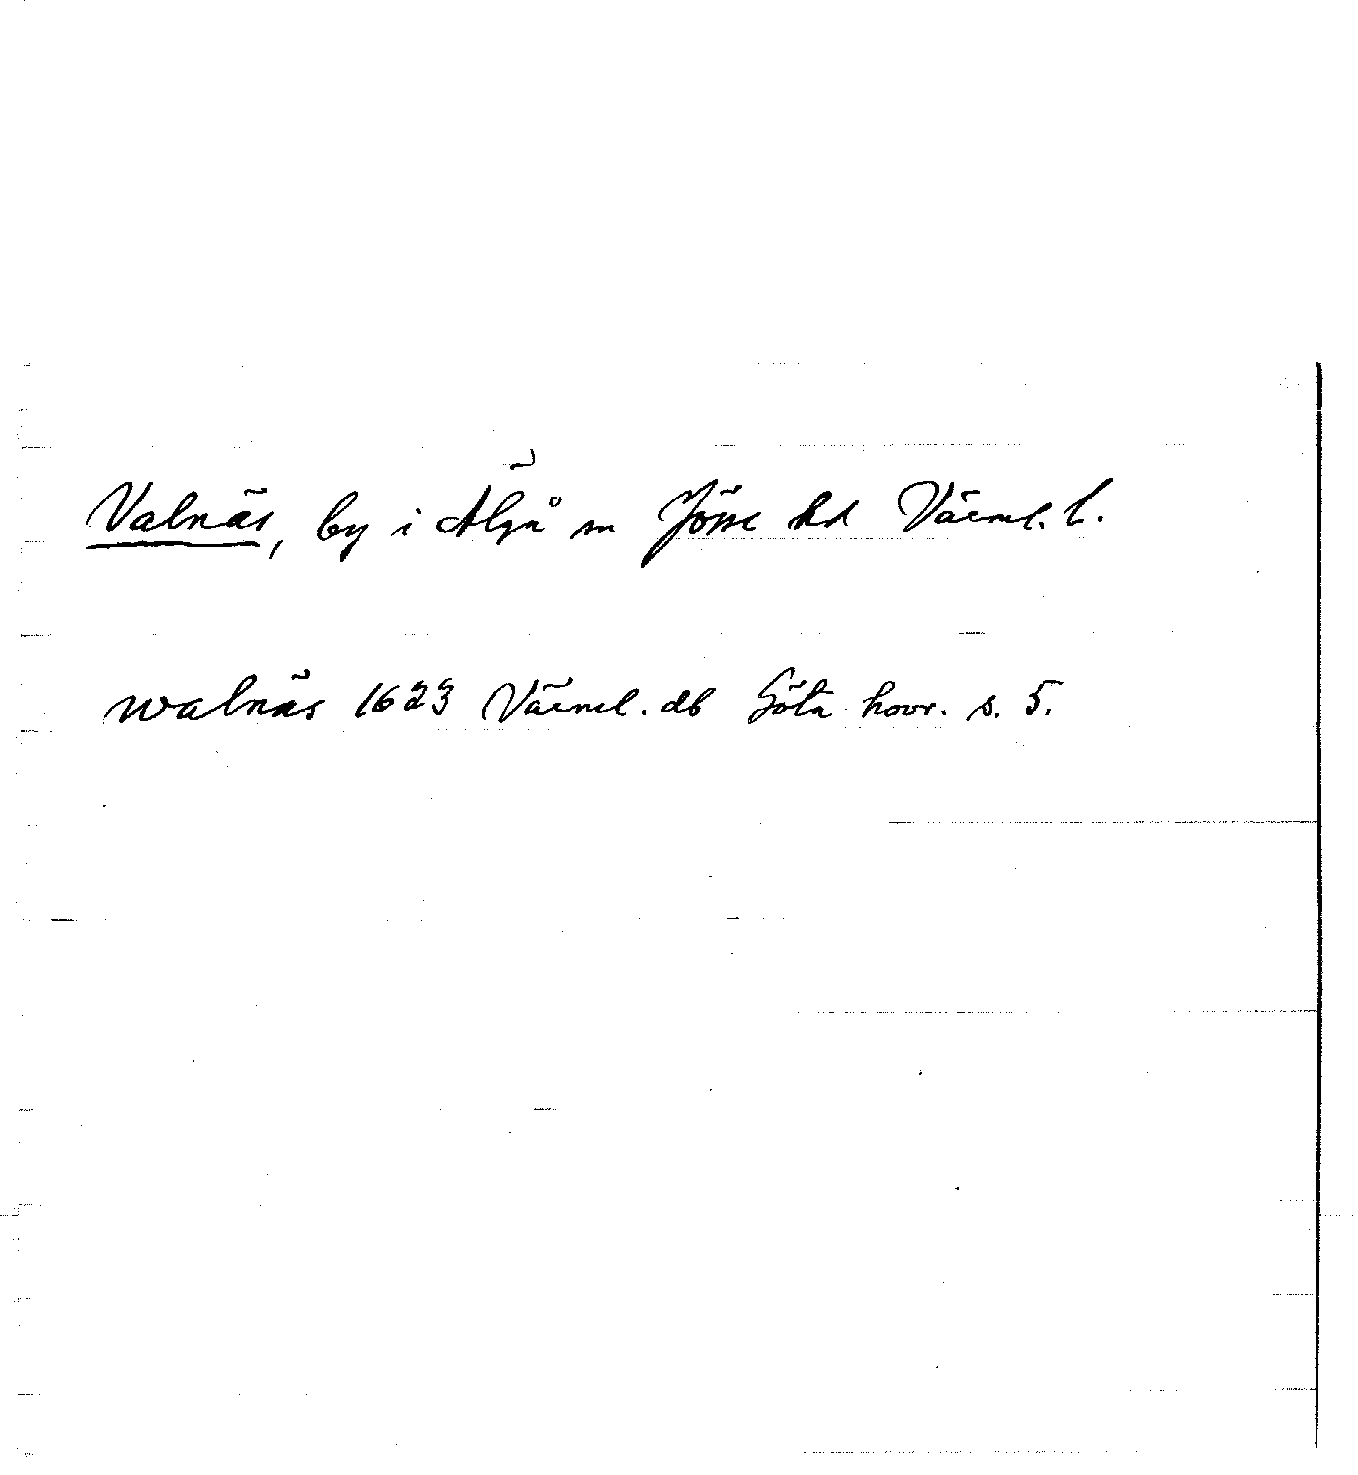 Valnäs, by i Älgå sn Jösse hd Värml. l.
Walnäs 1623 Värml. db Göta hovr. s. 5.